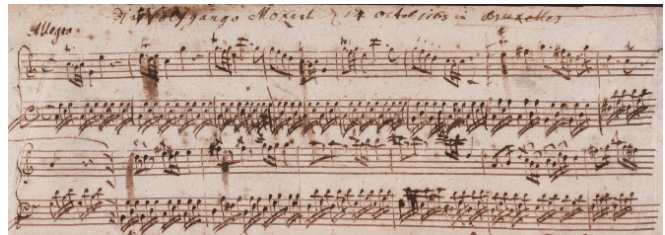 Wolfgango Mozart 14 octob. 1763 in Bruxelles
Allegro